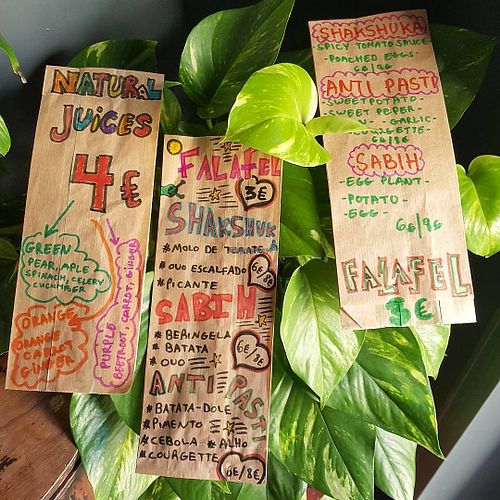 NATURAL
JUICES
4€
GREEN
PEAR, APLE
SPINACH, CELERY
CUCUMBER
ORANGE
ORANGE
CARROT
GINGER
PURPLE
BEETROOT, CARROT, GINGER
FALAFEL
3€
SHAKSHUK
* MOLO DE
* OVO ESCALFADO
* PICANTE
6€/8€
SABIH
* BERINGELA
* BATATA
* OVO
6€/8€
ANTI PASTI
* BATATA-DOLE
* PIMENTO
* CEBOLA * ALHO
* COURGETTE
6€/8€
SHAKSHUKA
SPICY TOMATO SAUCE
- POACHED EGGS -
6€/8€
ANTI PASTI
- SWEET POTATO -
- SWEET PEPER -
- GARLIC -
COURGETTE
6€/8€
SABIH
- EGG PLANT -
- POTATO -
- EGG -
6€/8€
FALAFEL
3€